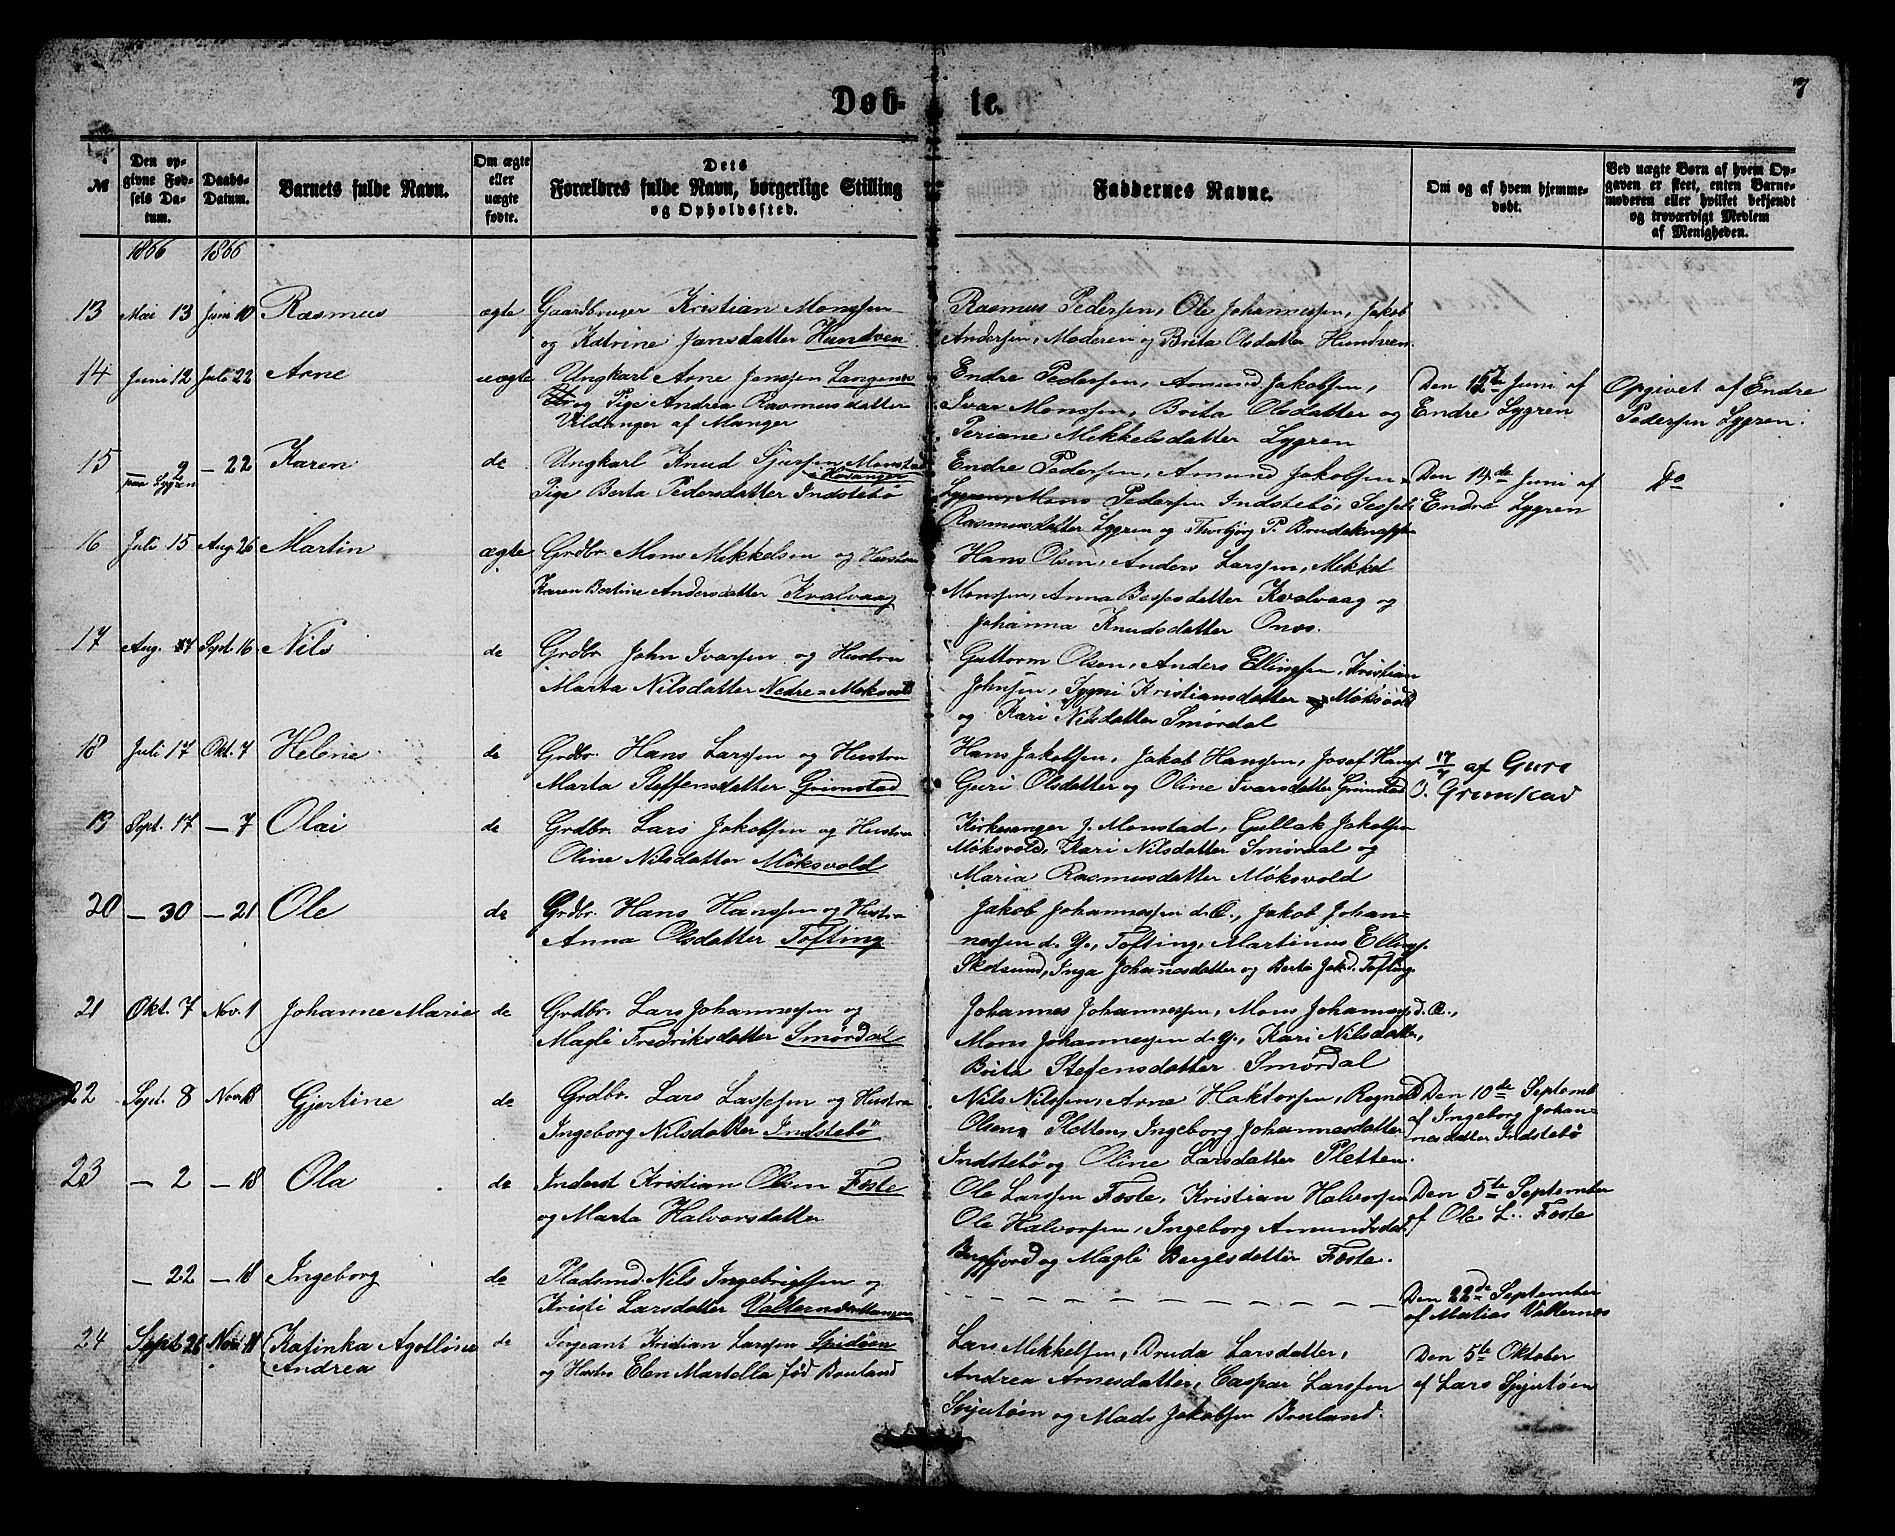 7
Døb- te.
№
Den op-
givne Fød-
sels Da-
tum.
Daabs-
Datum.
Barnets fulde Navn.
Om ægte
eller
uægte
fødte.
Dets
Forældres fulde Navn, borgerlige Stilling
og Opholdssted.
Faddernes Navne.
Om og af hvem hjemme-
døbt.
Ved uægte Børn af hvem Op-
gaven er skeet, enten Barne-
moderen eller hvilket bekjendt
og troværdigt Medlem
af Menigheden.
1866 1866
13 Mai 13 Juni 10 Rasmus ægte
Gaardbruger Kristian Monssen
og Katrine Jansdatter Hundven
Rasmus Pedersen, Ole Johannessen, Jakob
Andersen, Moderen og Brita Olsdatter Hundven
14 Juni 12 Juli 22 Arne uægte
Ungkarl Arne Jenssen
og Pige Andrea Rasmusdatter
Vildanger af Manger
Endre Pedersen, Amund Jakobsen,
Ivar Monssen, Brita Olsdatter og
Periane Mekkelsdatter Lygren
Den 15de Juni af
Endre Lygren
Opgivet af Endre
Pedersen Lygren.
15 — 9 — 22 Karen do
paa Lygren
Ungkarl Knud Sjursen Monstad
Hosanger
Pige Berta Pedersdatter Indstebø
Endre Pedersen, Amund Jakobsen
Lygren, Mons Pedersen Indstebø, Sesseli
Rasmusdatter Lygren og Thorbjørg P. Brudeknappen
Den 14de Juni af
Endre Lygren
do
16 Juli 15 Aug. 26 Martin ægte
Grdbr. Mons Mekkelsen og Hustru
Karen Bertine Andersdatter Kvalvaag
Hans Olsen, Anders Larssen, Mekkel
Monsen, Anna Bessesdatter Kvalvaag og
Johanna Knudsdatter Onæs.
17 Aug. 17 Sept. 16 Nils do
Grdbr. John Ivarsen og Hustru
Marta Nilsdatter Nedre-Møksvold
Guttorm Olsen, Anders Ellingsen, Kristian
Johnsen, Synni Kristiansdatter Møksvold
og Kari Nilsdatter Smørdal
18 Juli 17 Okt. 7 Helene do
Grdbr. Hans Larssen og Hustru
Marta Steffensdatter Grimstad
Hans Jakobsen, Jakob Hanssen, Josef Hans.
Guri Olsdatter og Oline Ivarsdatter Grimstad
17/7 af Guri
O. Grimstad
19 Sept. 17 — 7 Olai do
Grdbr. Lars Jakobsen og Hustru
Oline Nilsdatter Møksvold
Kirkesanger J. Monstad, Gullak Jakobsen
Møksvold, Kari Nilsdatter Smørdal og
Maria Rasmusdatter Møksvold
20 — 30 — 21 Ole do
Grdbr. Hans Hanssen og Hustru
Anna Olsdatter Tofting
Jakob Johannessen d. Æ., Jakob Johan-
nessen d. Y., Tofting, Martinius Ellings.
Skotsund, Inga Johanesdatter og Berta Jakd. Tofting.
21 Okt. 7 Nov. 1 Johanne Marie do
Grdbr. Lars Johannessen og
Magli Fredriksdatter Smørdal
Johannes Johannessen, Mons Johannes. d. Æ.,
Mons Johannessen d. Y., Kari Nilsdatter,
Brita Stefensdatter Smørdal
22 Sept. 8 Nov. 18 Gjertine do
Grdbr. Lars Lassesen og Hustru
Ingeborg Nilsdatter Indstebø
Nils Nilssen, Arne Haktorsen, Ragna
Olsen Pletten, Ingeborg Johannesdatter
Indstebø og Oline Larsdatter Pletten.
Den 10de Septemb
af Ingeborg Johan-
nesdatter Indstebø
23 — 2 — 18 Ola do
Inderst Kristian Olsen Foste
og Marta Halvorsdatter
Ole Larssen Foste, Kristian Halvorsen
Ole Halvorsen, Ingeborg Amundsdat.
Bergfjord og Magli Bergesdatter Foste.
Den 5te September
af Ole L. Foste
— 22 — 18 Ingeborg do
Pladsmd. Nils Ingebrigtsen og
Kristi Larsdatter
Den 22de September
af Matias Valternes
24 Sept 26 Nov 18 Katinka Agotline
Andrea
do
Sergeant Kristian Larssen
og Hustru Elen Martella fød Bouland
Lars Mekkelsen, Druda Larsdatter,
Andrea Arnesdatter, Caspar Larssen
Spjutøen og Mads Jakobsen Bouland.
Den 5te Oktober
af Lars Spjutøen